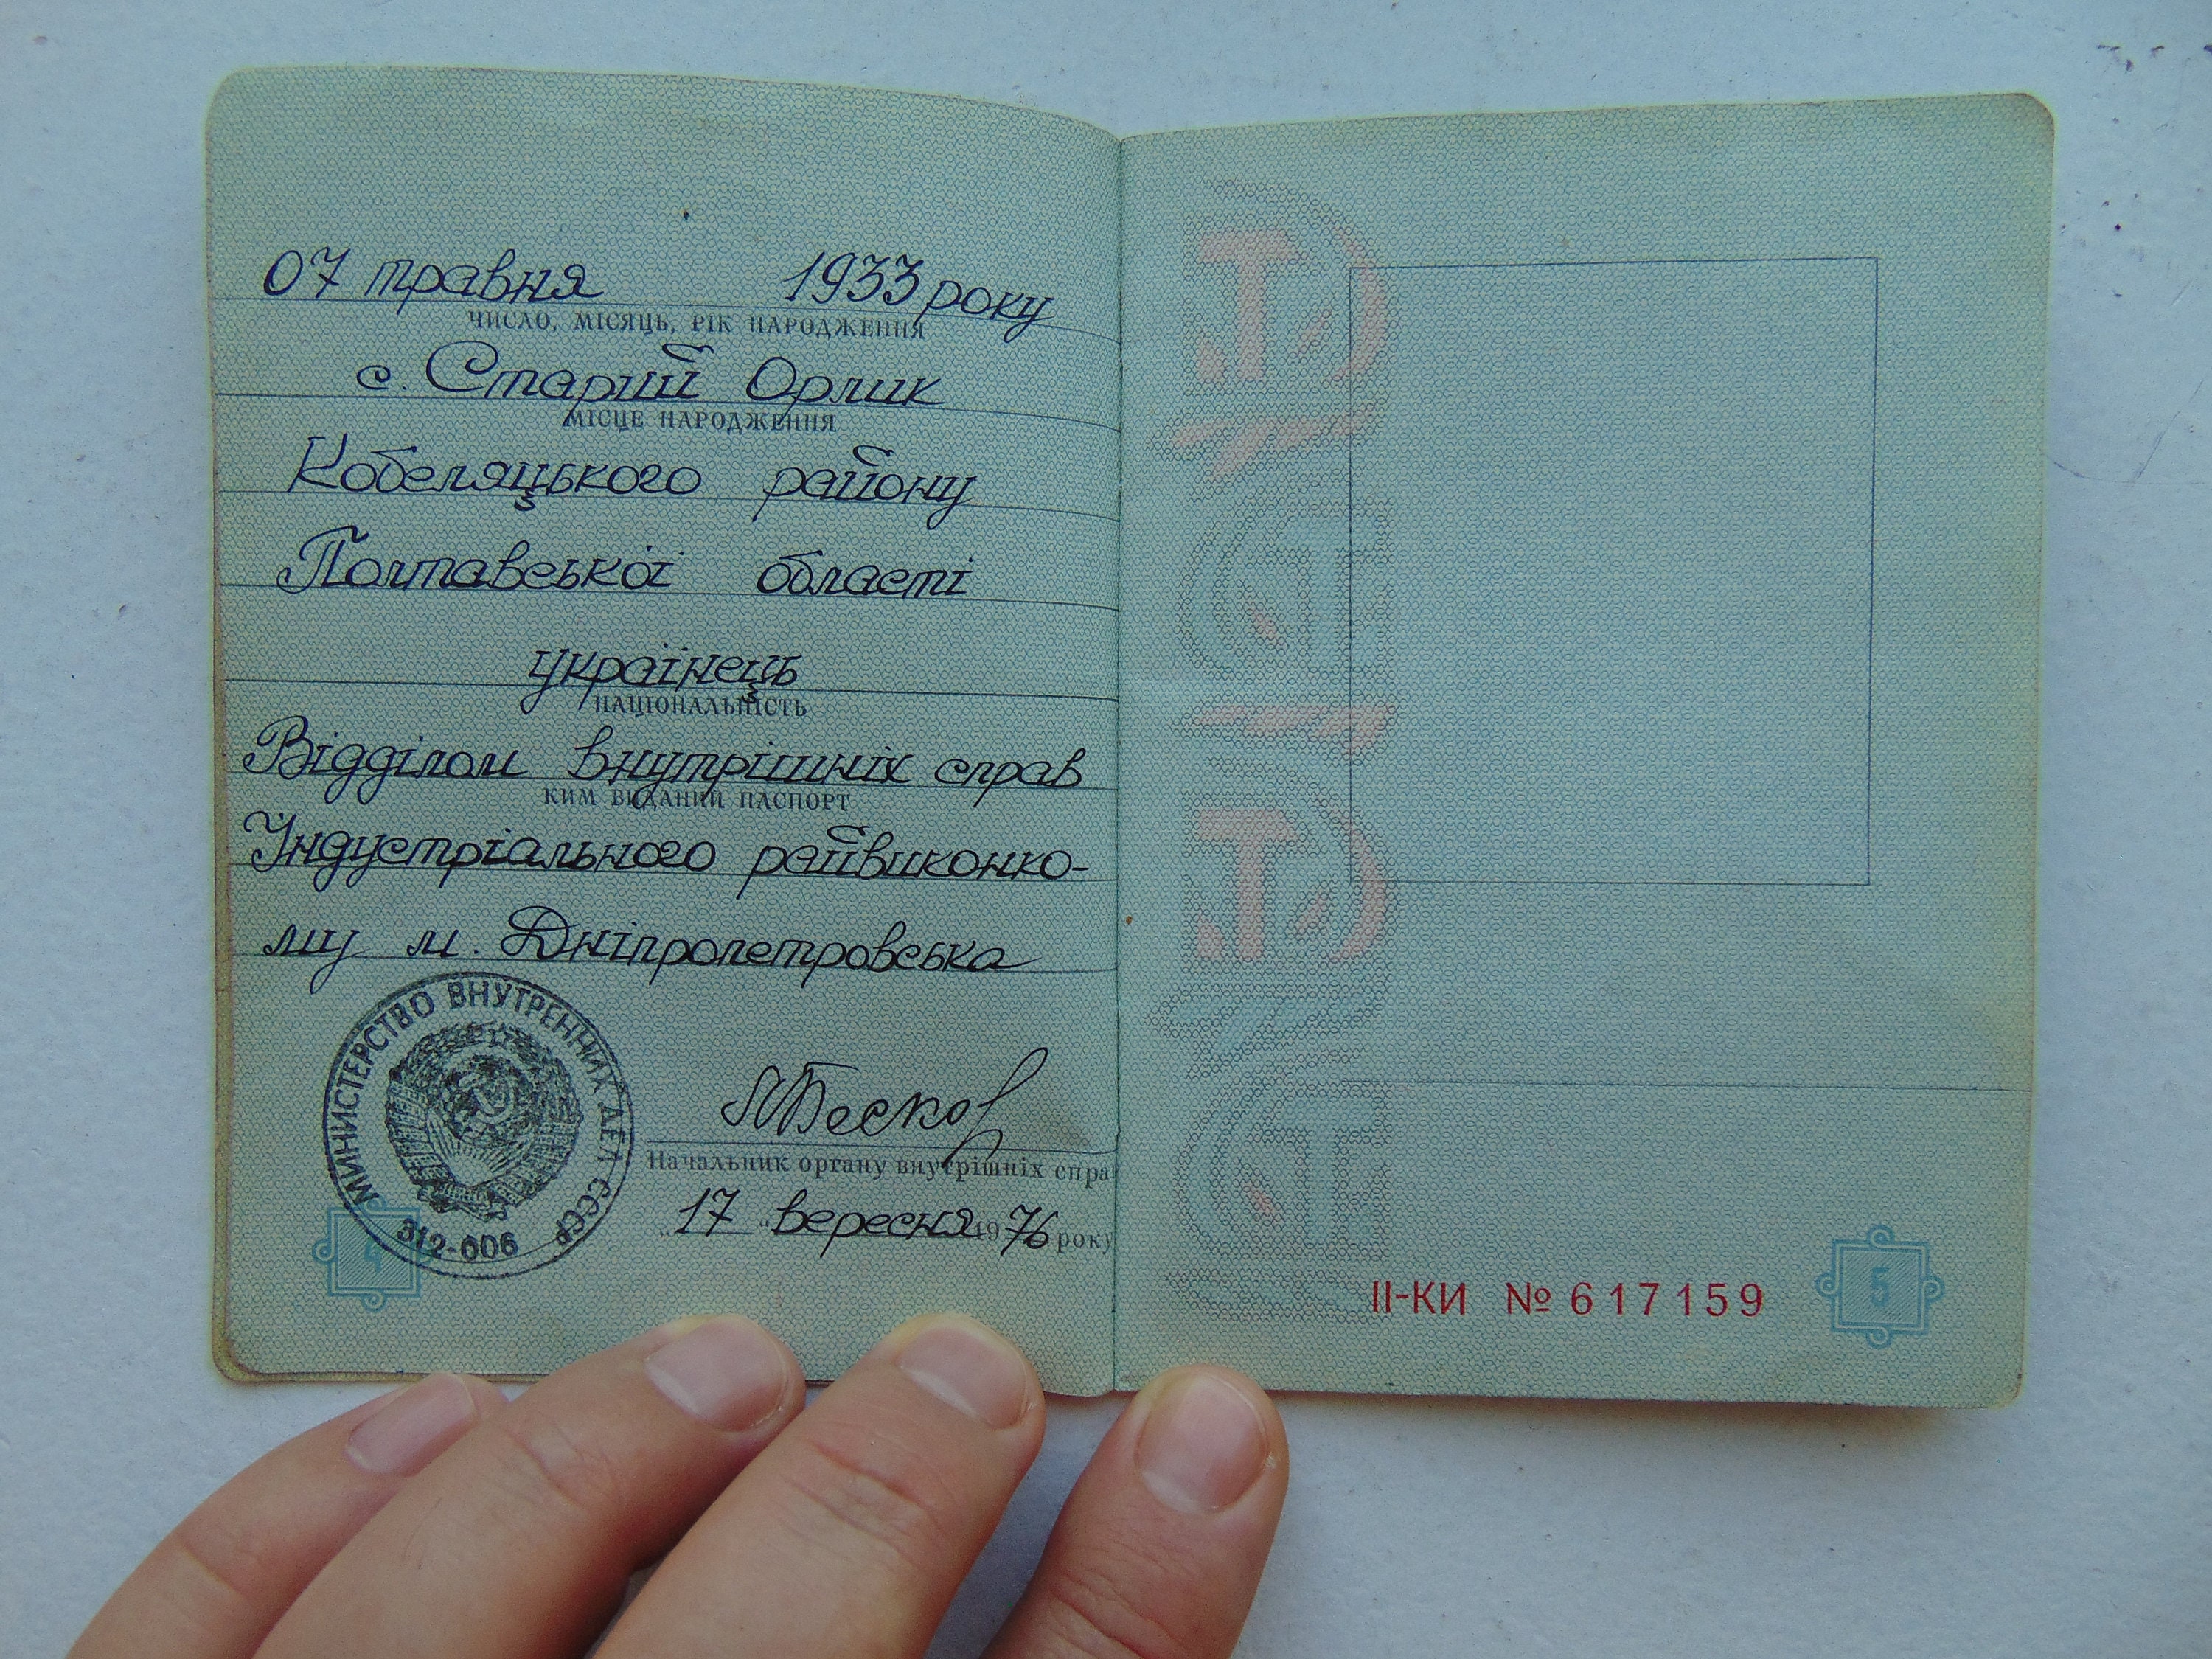 07 травня 1933 року
ЧИСЛО, МІСЯЦЬ, РІК НАРОДЖЕННЯ
с. Старий Орлик
МІСЦЕ НАРОДЖЕННЯ
Кобеляцького району
Полтавської області
українець
НАЦІОНАЛЬНІСТЬ
Відділом внутрішніх справ
КИМ ВИДАНИЙ ПАСПОРТ
Індустріального райвиконко-
му м. Дніпропетровська
МИНИСТЕРСТВО ВНУТРЕННИХ ДЕЛ СССР
312-006
Начальник органу внутрішніх справ
„ 17 “ вересня 1976 року
4
II-КИ № 617159
5